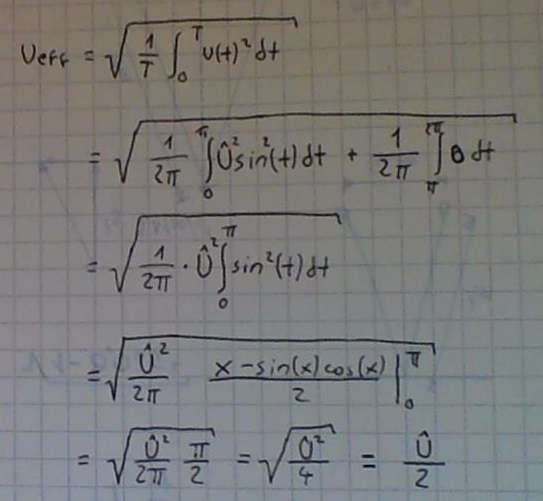 Ueff = √( 1/T ∫₀ᵀ U(t)² dt )
= √( 1/2π ∫₀^π Û² sin²(t) dt + 1/2π ∫_π^2π 0 dt )
= √( 1/2π · Û² ∫₀^π sin²(t) dt )
= √( Û²/2π (x - sin(x) cos(x))/2 |₀^π )
= √( Û²/2π π/2 ) = √( Û²/4 ) = Û/2